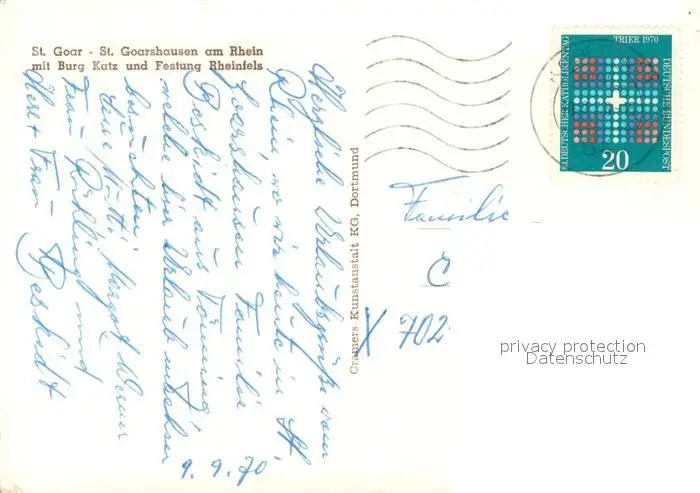 St. Goar - St. Goarshausen am Rhein
mit Burg Katz und Festung Rheinfels
Herzliche Urlaubsgrüße vom
Rhein, wo wir heute in St.
Goarshausen Familie
aus
welche hier Urlaub machen
besuchten.
Eure Mutti, Margot, Werner
Frau und
Herr + Frau
9.9.70
Cramers Kunstaustalt KG, Dortmund
Familie
X 702
TRIER 1970
83.DEUTSCHER KATHOLIKENTAG
DEUTSCHE BUNDESPOST
20
privacy protection
Datenschutz